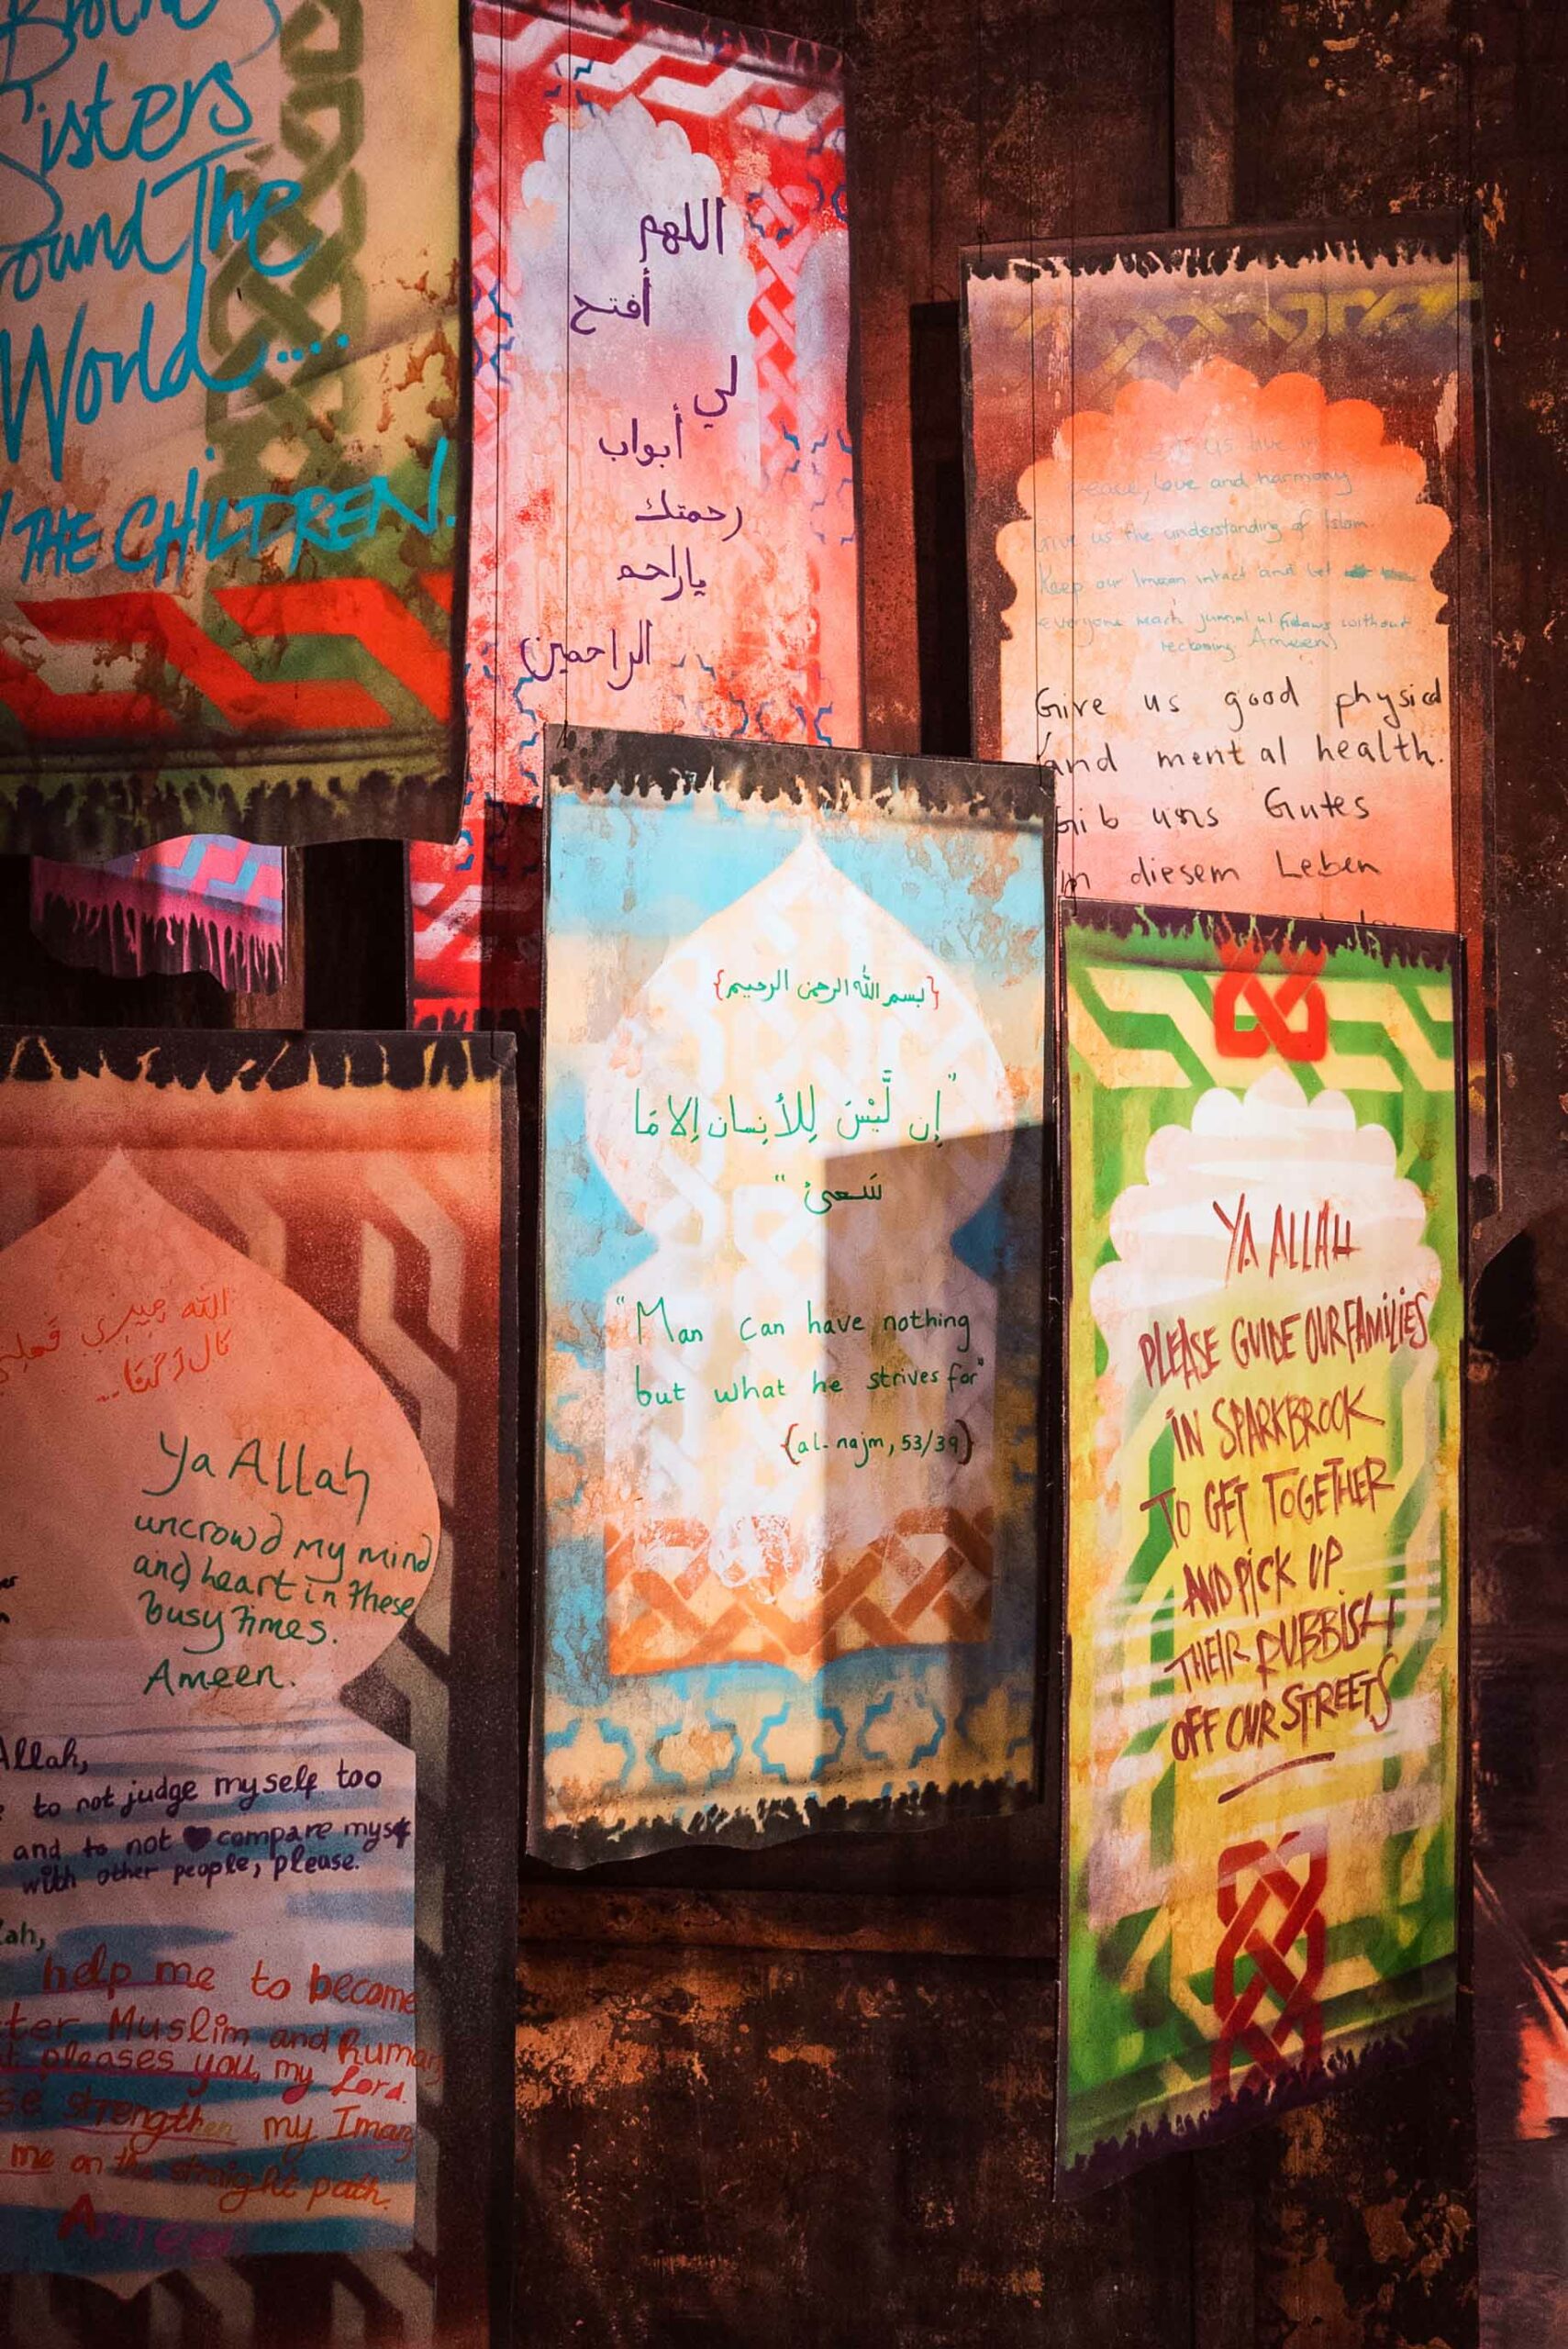 Sisters
The
World....
THE CHILDREN.
اللهم
أفتح
لي
أبواب
رحمتك
ياراحم
الراحمين
us live in
peace, love and harmony
Give us the understanding of Islam.
Keep our Imaan intact and let
everyone reach ul firdaws without
reckoning Ameen)
Give us good physical
and mental health.
Gib uns Gutes
in diesem Leben
{بسم الله الرحمن الرحيم}
"إن لَّيْسَ لِلأنِسان إِلا مَا
سَعىٰ"
"Man can have nothing
but what he strives for"
{al-najm, 53/39}
YA ALLAH
PLEASE GUIDE OUR FAMILIES
IN SPARKBROOK
TO GET TOGETHER
AND PICK UP
THEIR RUBBISH
OFF OUR STREETS
الله
Ya Allah
uncrowd my mind
and heart in these
busy times.
Ameen.
Allah,
to not judge myself too
and to not compare myself
with other people, please.
help me to become
Muslim and human
pleases you, my Lord.
strengthen my Iman
me on the straight path.
Ameen